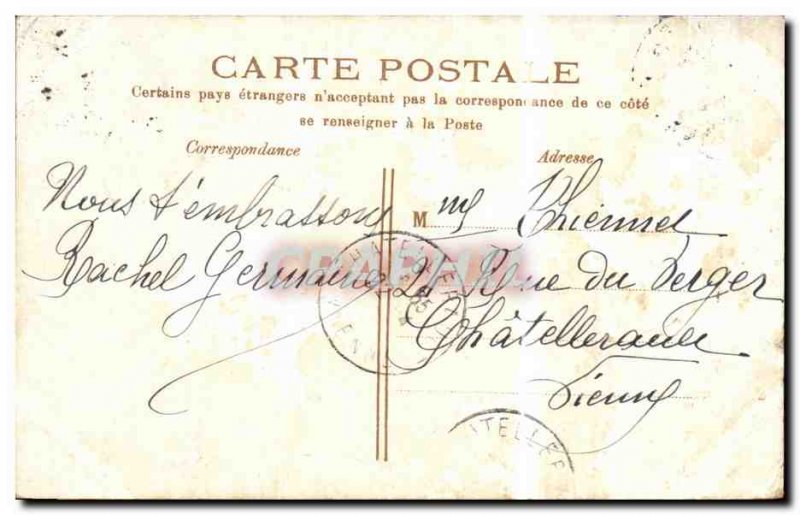 CARTE POSTALE
Certains pays étrangers n'acceptant pas la correspondance de ce côté
se renseigner à la Poste
Correspondance
Nous t'embrassons
Rachel Germaine
Adresse
M me Thiennet
24 Rue du Verger
Châtellerault
Vienne
CHATELLERAULT
VIENNE
ATELLER